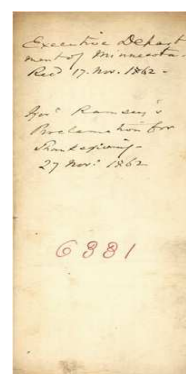 Executive Depart
ment of Minnesota.
Rec'd 17. Nov. 1862 -
Gov's Ramsey's
Proclamation for
Thanksgiving -
27 Nov: 1862
6881